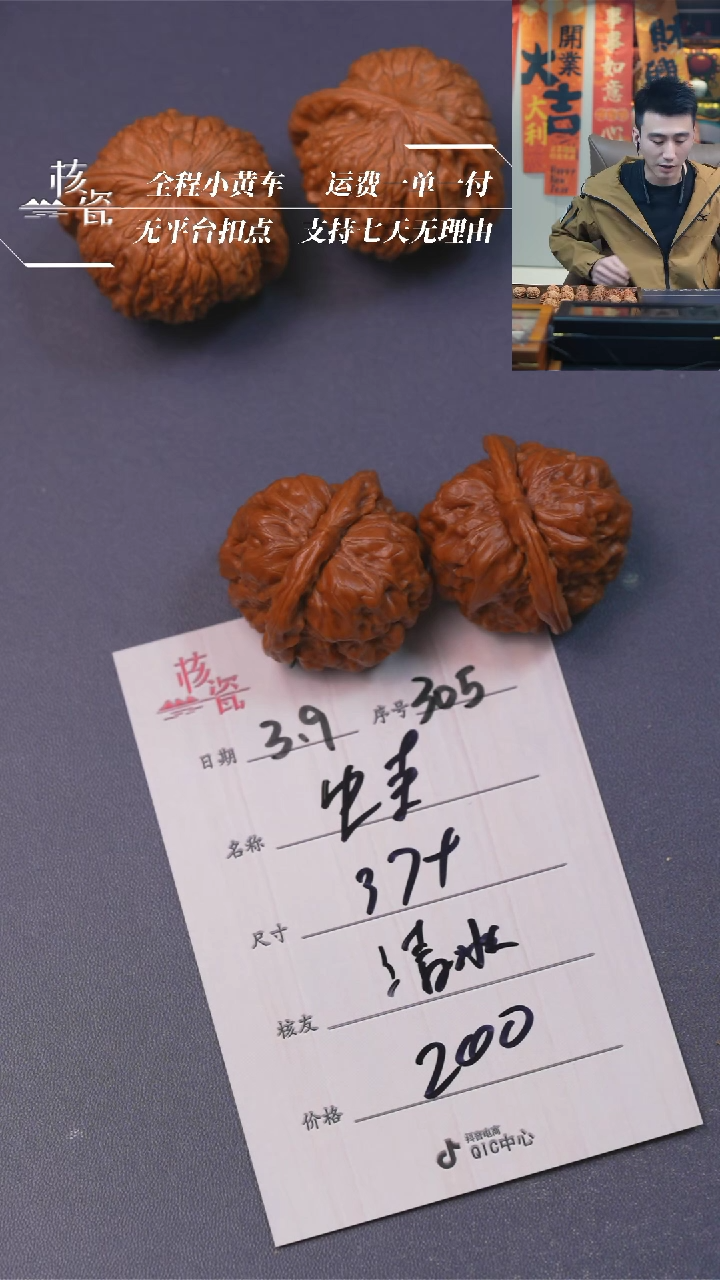 核瓷
全程小黄车 运费一单一付
无平台扣点 支持七天无理由
開業
大吉
大利
事事如意
核瓷
日期 3.9 序号 305
名称
尺寸 37+
核友 清水
价格 200
抖音电商
QIC中心